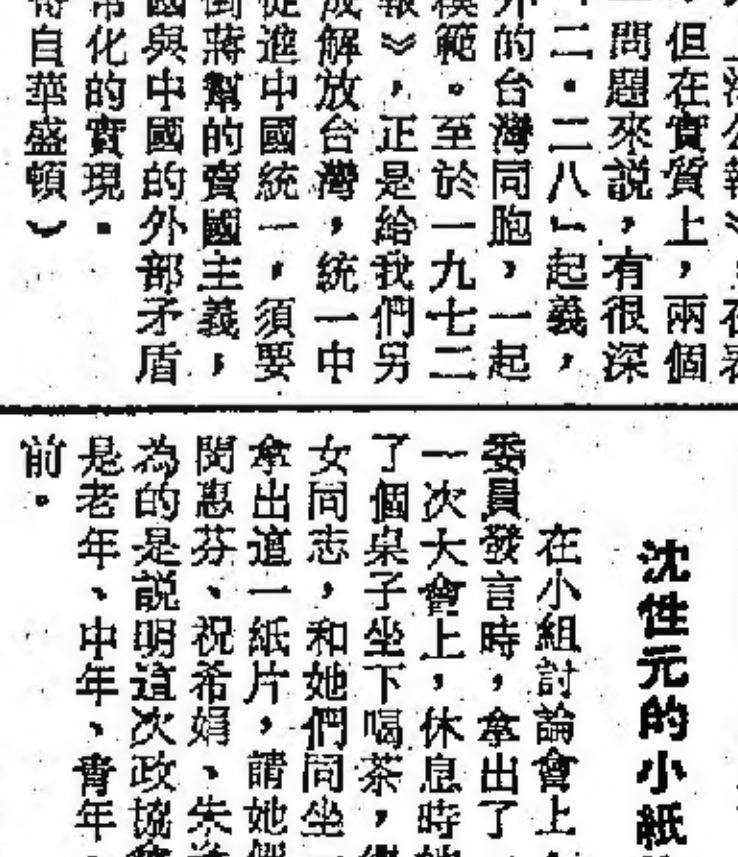 但在實質上，兩個
問題來説，有很深
二·二八」起義，
外的台灣同胞，一起
模範。至於一九七二
報》，正是給我們另
成解放台灣，統一中
促進中國統一，須要
倒蔣幫的賣國主義；
國與中國的外部矛盾
常化的實現。
寄自華盛頓）
沈性元的小紙
在小組討論會上
委員發言時，拿出了
一次大會上，休息時她
了個桌子坐下喝茶，
女同志，和她們同坐
拿出這一紙片，請她們
閔惠芬、祝希娟、朱
為的是説明這次政協會
是老年、中年、青年
前。